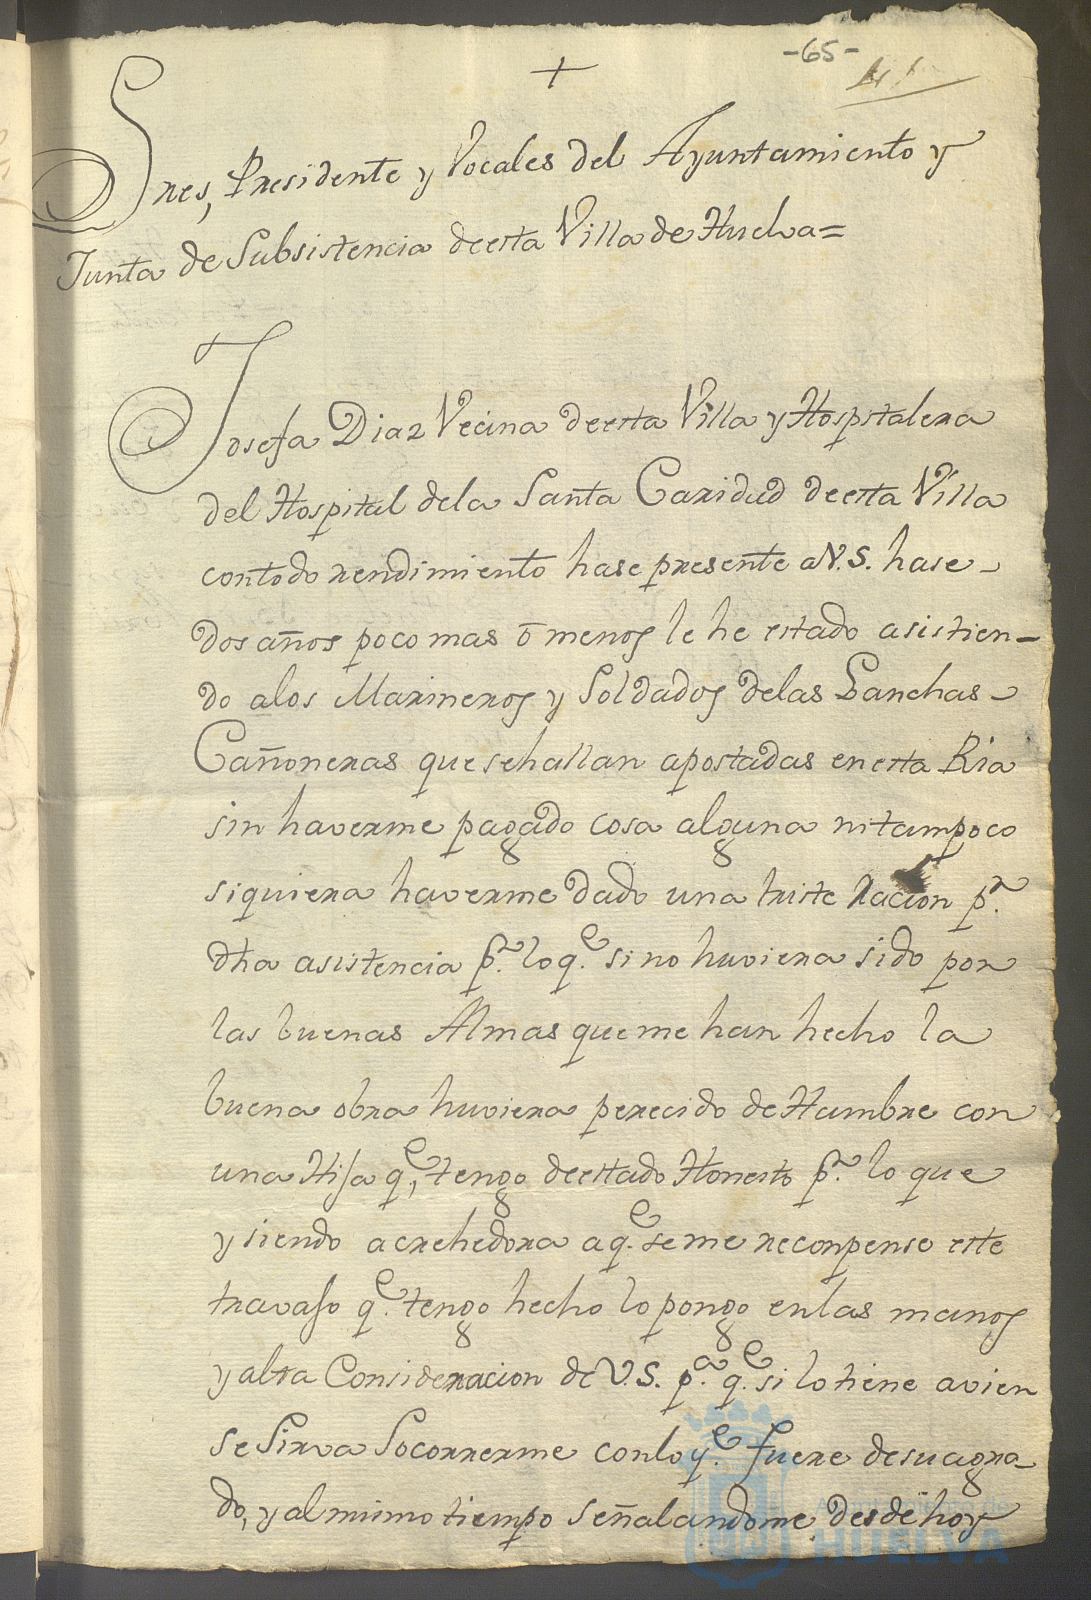 -65-
41
+
Sres, Presidente y Vocales del Ayuntamiento y
Junta de Subsistencia deesta Villa de Huelva=
Josefa Diaz Vecina deesta Villa y Hospitalera
del Hospital dela Santa Caridad deesta Villa
contodo rendimiento hase presente aV.S. hase
dos años poco mas ó menos le he estado asistien-
do alos Marineros y Soldados delas Lanchas
Cañoneras que sehallan apostadas enesta Ria
sin haverme pagado cosa alguna nitampoco
siquiera haverme dado una triste racion p.ʳ
dha asistencia p.ʳ loq.ᵉ sino huviera sido por
las buenas Almas queme han hecho la
buena obra huviera perecido de Hambre con
una Hija q.ᵉ tengo deestado Honesto p.ʳ lo que
y siendo acrehedora aq.ᵉ seme reconpense este
travajo q.ᵉ tengo hecho lo pongo enlas manos
yalta Consideracion de V.S. p.ᵃ q.ᵉ si lo tiene avien
se Sirva Socorrerme conlo q.ᵉ fuere desuagra-
do, yalmismo tiempo señalandome desde hoy
Ayuntamiento de
HUELVA